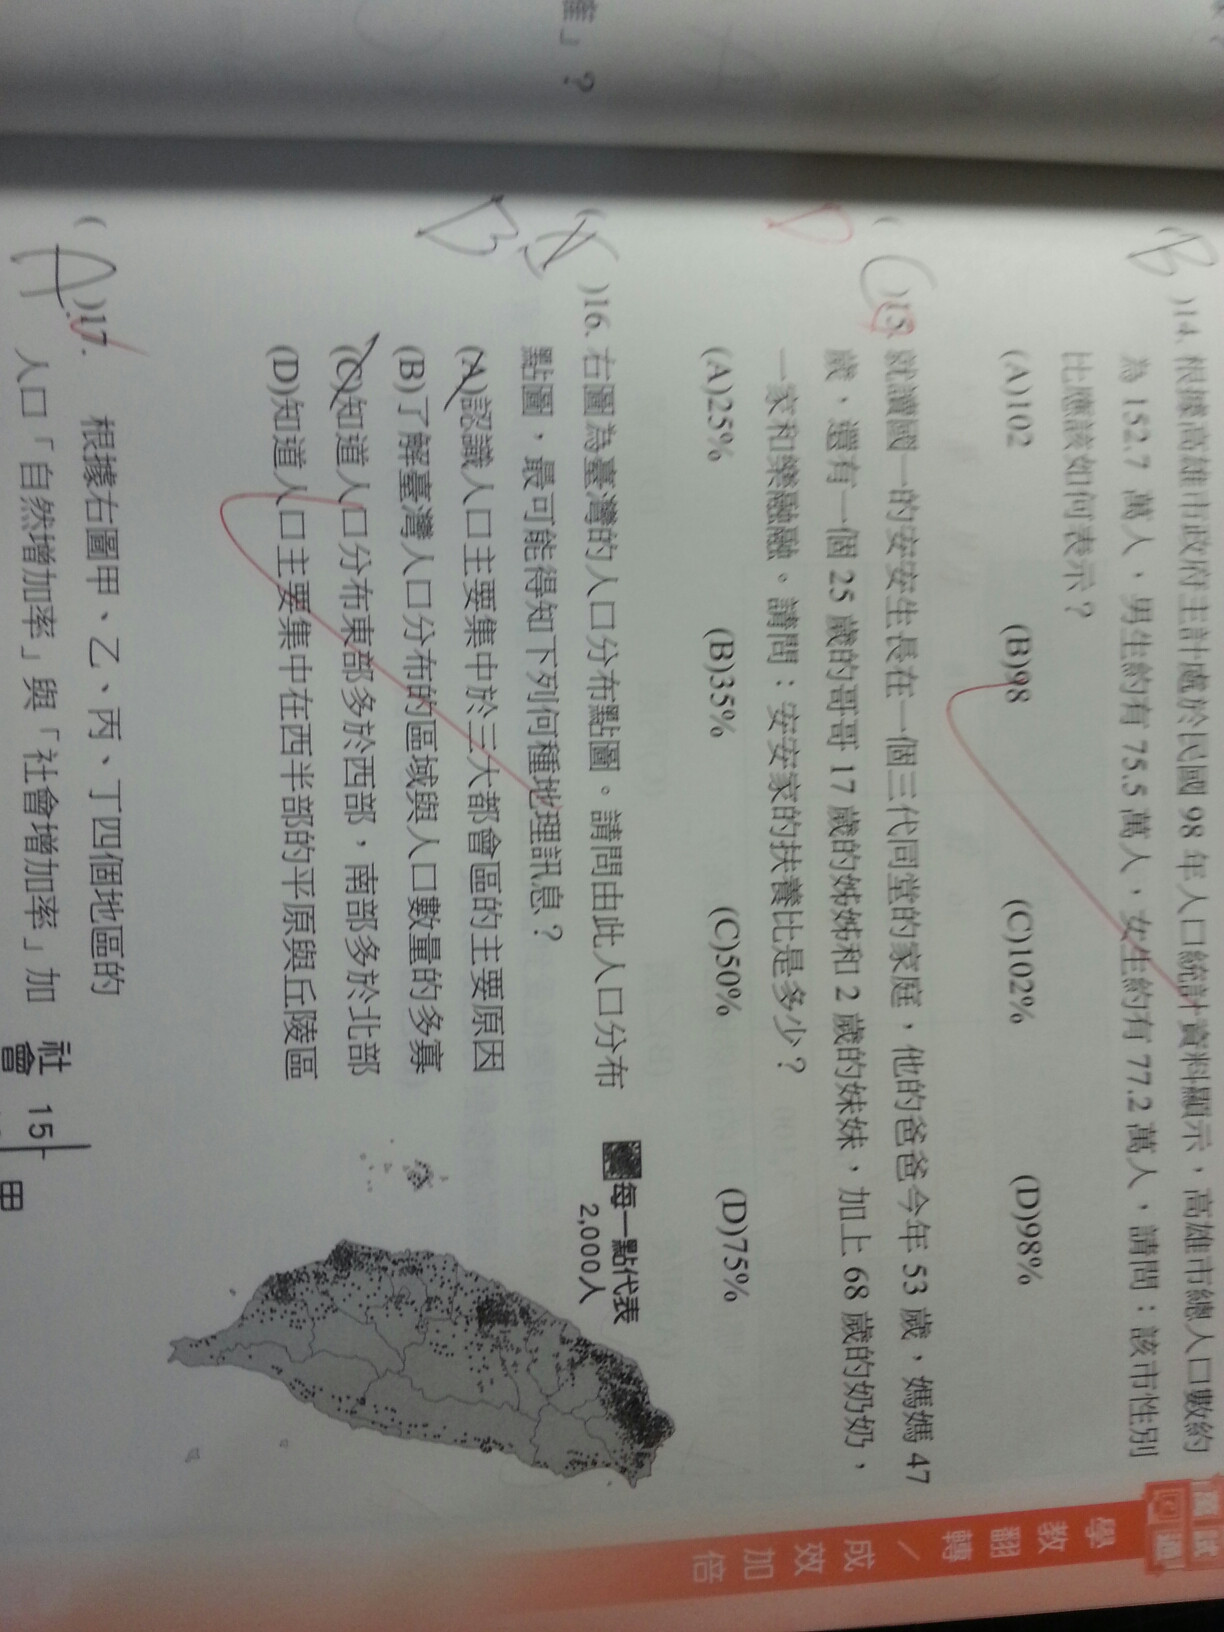 雀」？
B )14. 根據高雄市政府主計處於民國 98 年人口統計資料顯示，高雄市總人口數約
為 152.7 萬人，男生約有 75.5 萬人，女生約有 77.2 萬人，請問：該市性別
比應該如何表示？
(A)102 (B)98 (C)102% (D)98%
( C )15. 就讀國一的安安生長在一個三代同堂的家庭，他的爸爸今年 53 歲，媽媽 47
D 歲，還有一個 25 歲的哥哥 17 歲的姊姊和 2 歲的妹妹，加上 68 歲的奶奶，
一家和樂融融。請問：安安家的扶養比是多少？
(A)25% (B)35% (C)50% (D)75%
( )16. 右圖為臺灣的人口分布點圖。請問由此人口分布
點圖，最可能得知下列何種地理訊息？
B
(A)認識人口主要集中於三大都會區的主要原因
(B)了解臺灣人口分布的區域與人口數量的多寡
(C)知道人口分布東部多於西部，南部多於北部
(D)知道人口主要集中在西半部的平原與丘陵區
每一點代表
2,000人
( A )17. 根據右圖甲、乙、丙、丁四個地區的
人口「自然增加率」與「社會增加率」加
社會 15
甲
學教翻轉／成效加倍